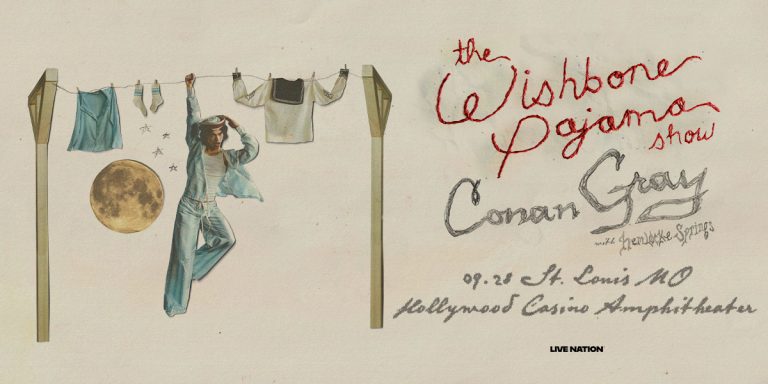 the
Wishbone
Pajama
show
Conan Gray
with
09.28 St. Louis MO
Hollywood Casino Amphitheater
LIVE NATION